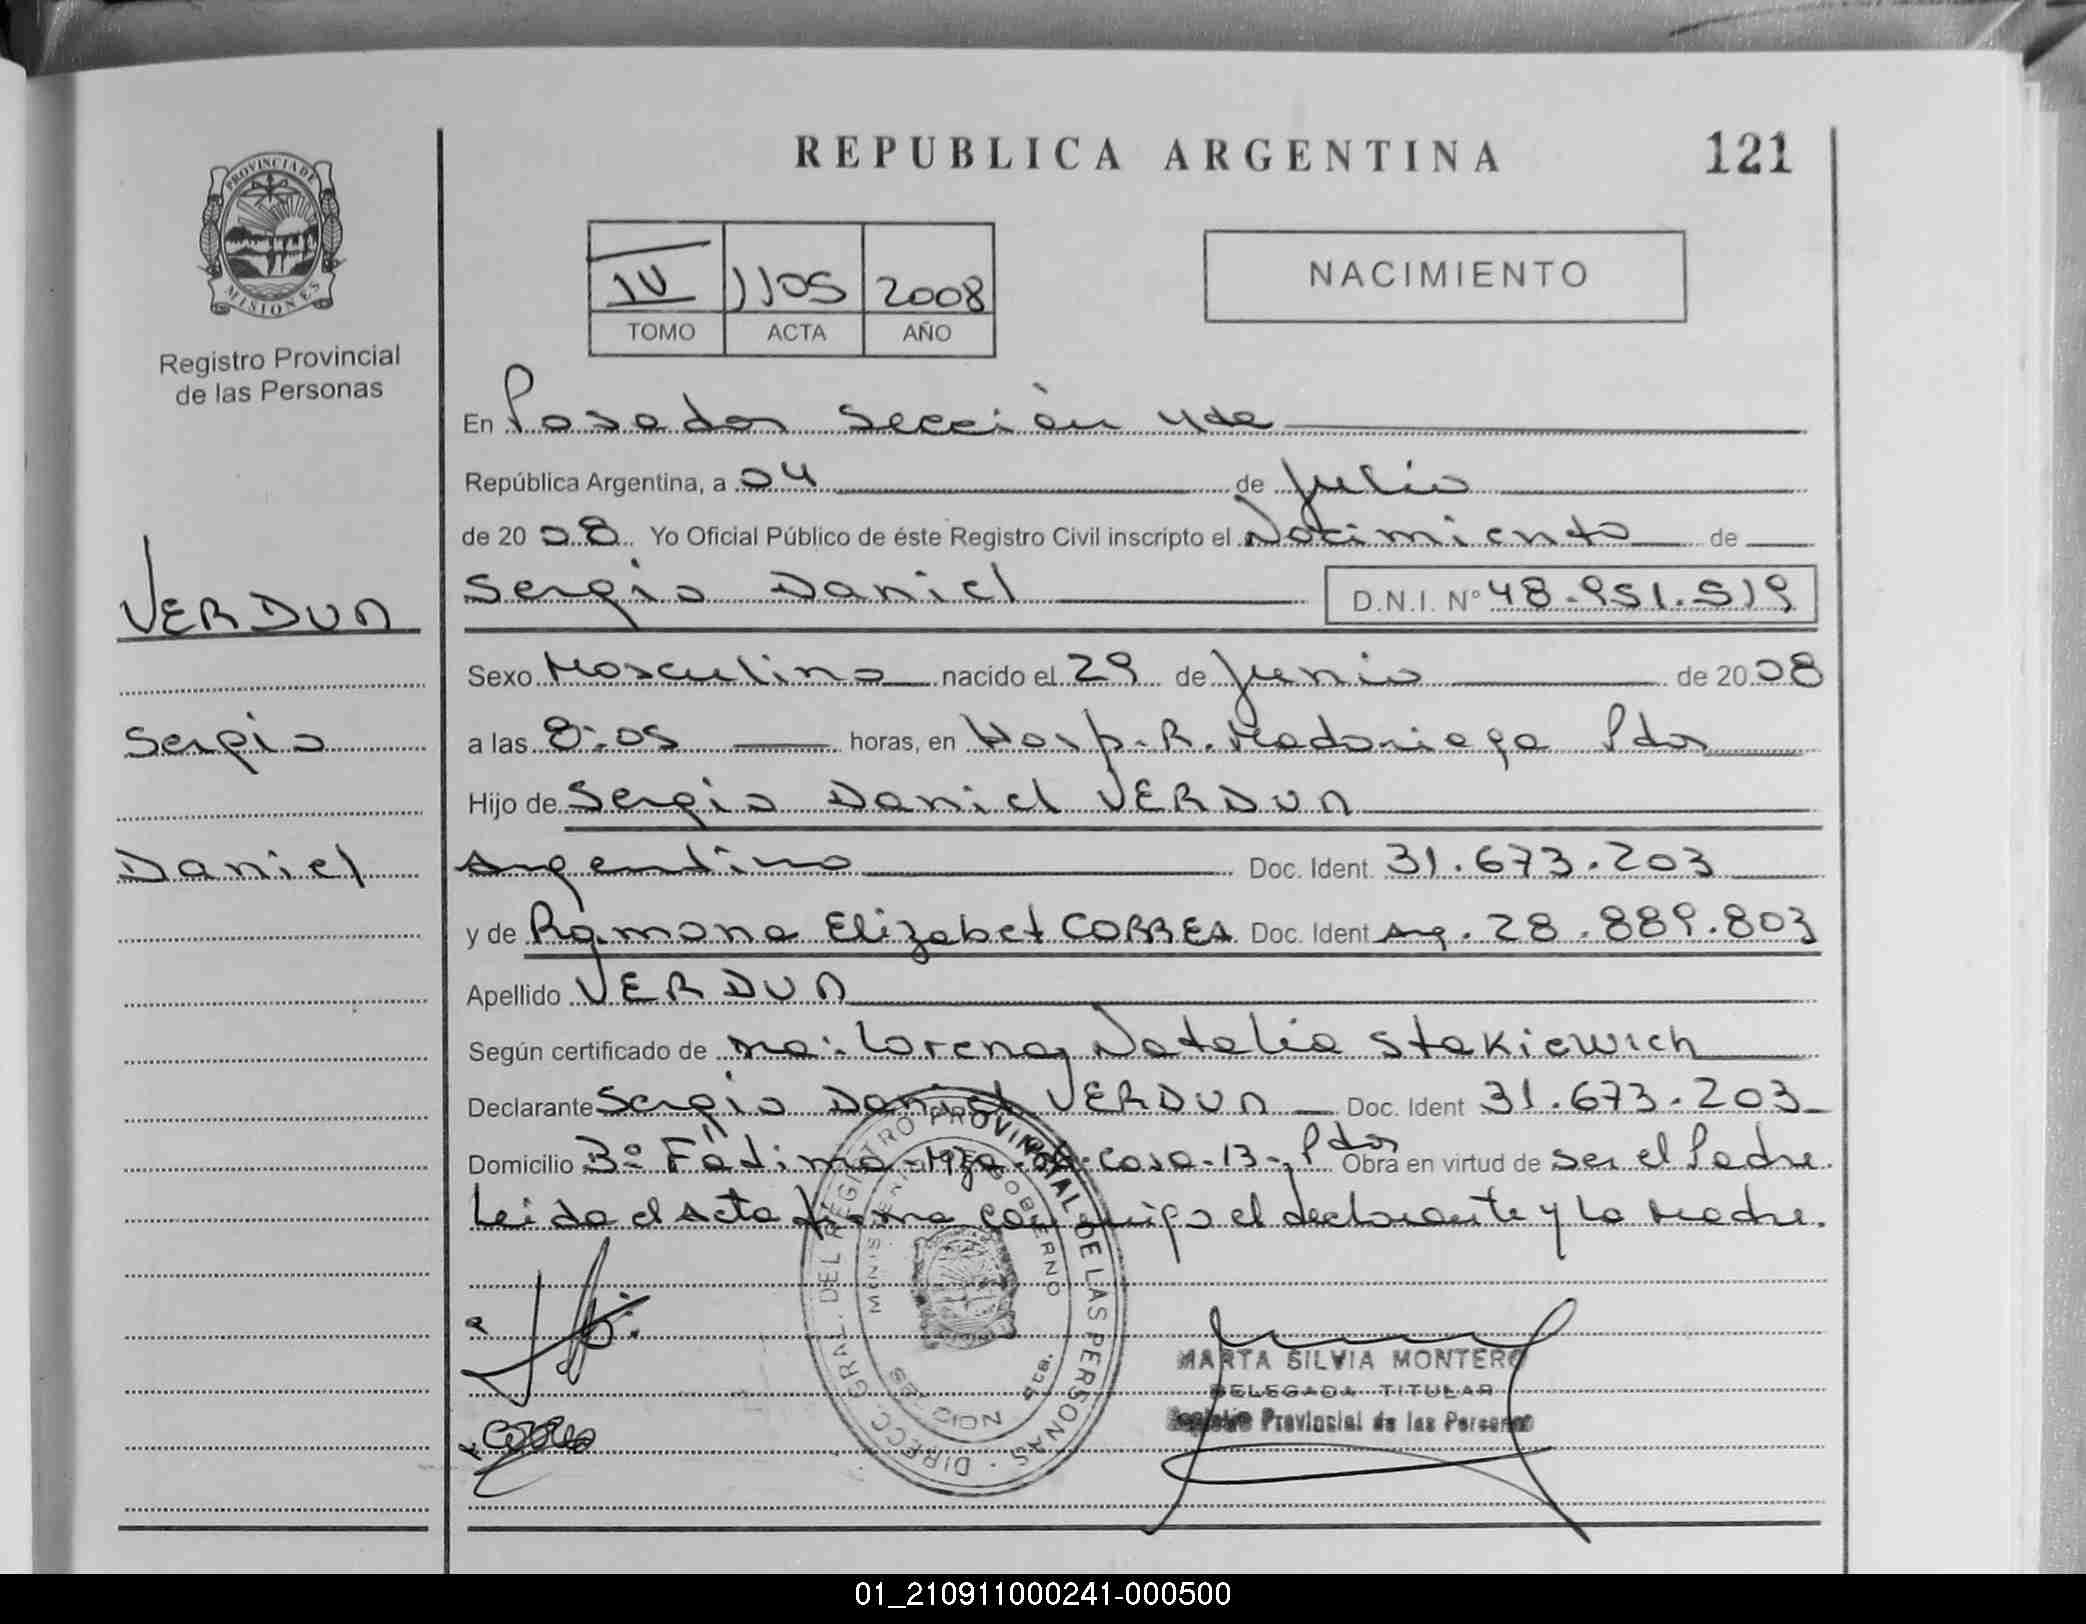 REPUBLICA ARGENTINA
121
PROVINCIA DE
MISIONES
Registro Provincial
de las Personas
IV 1105 2008
TOMO ACTA AÑO
NACIMIENTO
En Posadas Sección 4ta
República Argentina, a 04 de Julio
de 2008 Yo Oficial Público de éste Registro Civil inscripto el Nacimiento de
VERDUN
Sergio Daniel D.N.I. Nº 48.951.519
Sexo Masculino nacido el 29 de Junio de 2008
Sergio
a las 8:05 horas, en Hosp. R. Madariaga Pdas
Hijo de Sergio Daniel VERDUN
Daniel
Argentino Doc. Ident. 31.673.203
y de Ramona Elizabet CORREA Doc. Ident Arg. 28.889.803
Apellido VERDUN
Según certificado de Lorena Natalia Stakiewich
Declarante Sergio Daniel VERDUN Doc. Ident 31.673.203
Domicilio Bº Fátima - Mza - Casa - 13 - Pdas Obra en virtud de ser el Padre
Leida el Acta firma conmigo el declarante y la Madre.
DIRECC. GRAL. DEL REGISTRO PROVINCIAL DE LAS PERSONAS
GOBIERNO
Correa
MARTA SILVIA MONTERO
DELEGADA TITULAR
Registro Provincial de las Personas
01_210911000241-000500